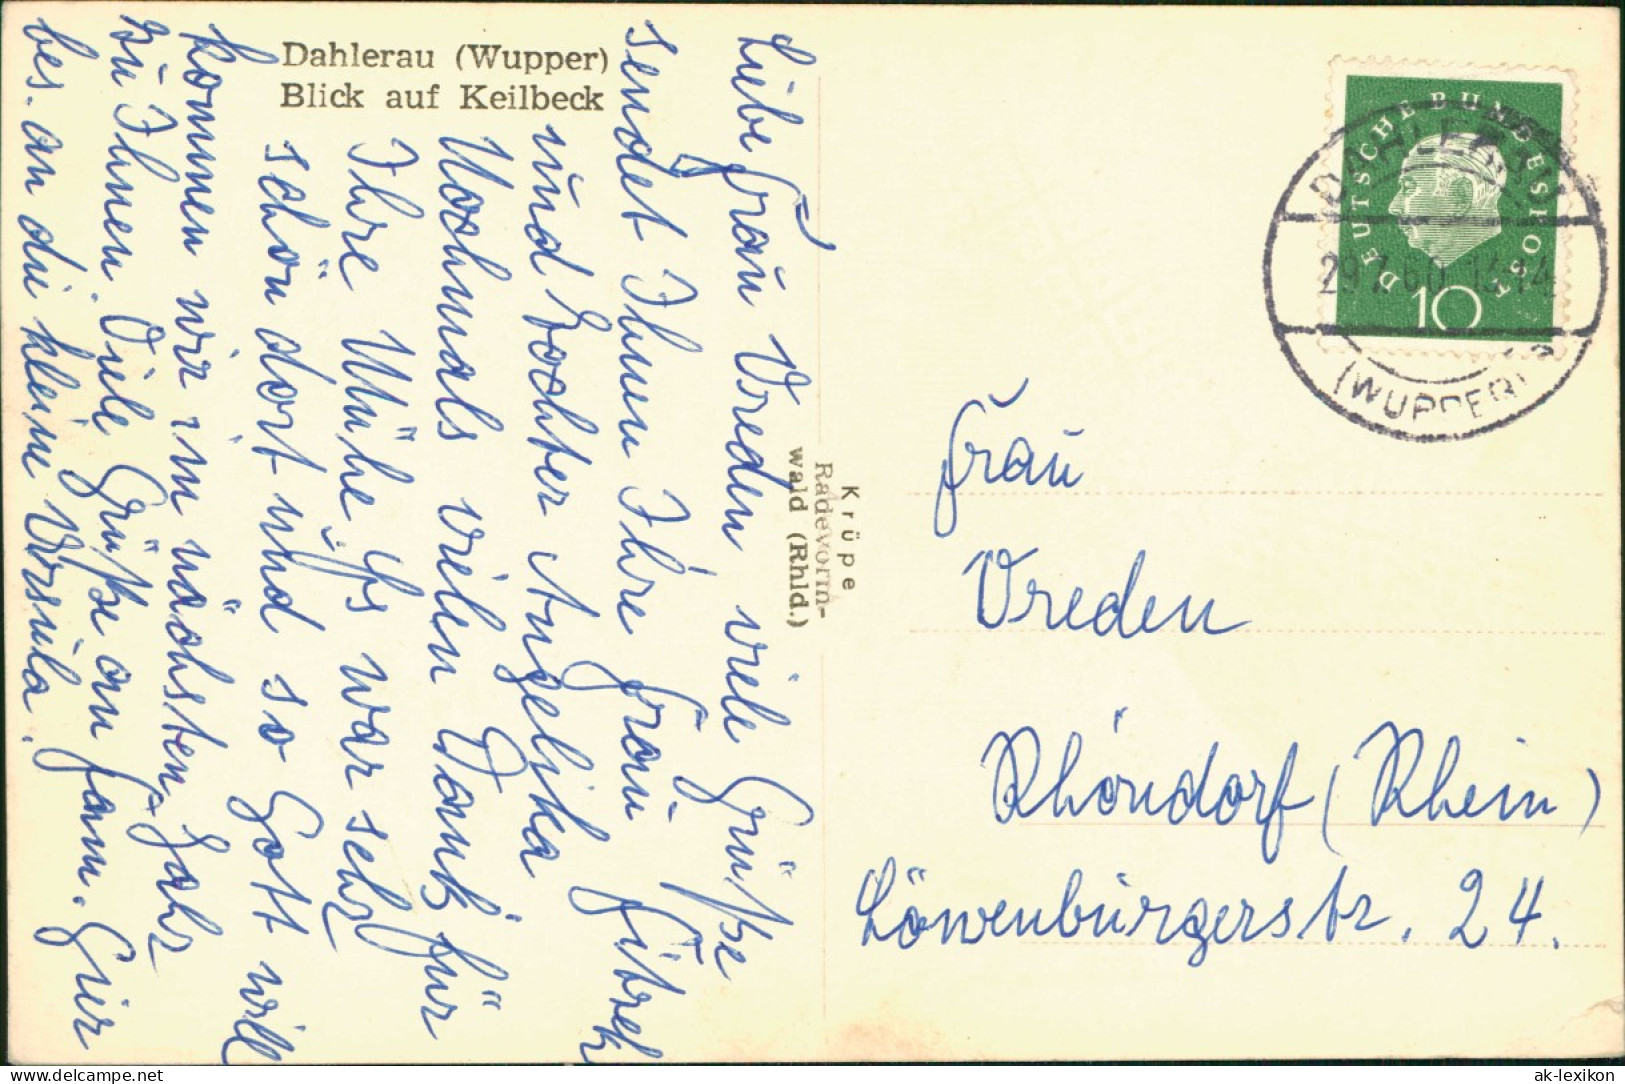 Dahlerau (Wupper)
Blick auf Keilbeck
Liebe Frau Vreden, viele Grüße
sendet Ihnen Ihre Frau
und Tochter Angelika
Nochmals vielen Dank für
Ihre Mühe. Es war sehr
schön dort und so Gott will
kommen wir im nächsten Jahr
zu Ihnen. Viele Grüße an Fam. Gier
bes. an die kleine Ursula.
Krüpe
Radevorm-
wald (Rhld.)
DEUTSCHE BUNDESPOST
10
DAHLERAU
29.7.60 13-14
(WUPPER)
Frau
Vreden
Rhöndorf (Rhein)
Löwenburgerstr. 24.
delcampe.net
ak-lexikon